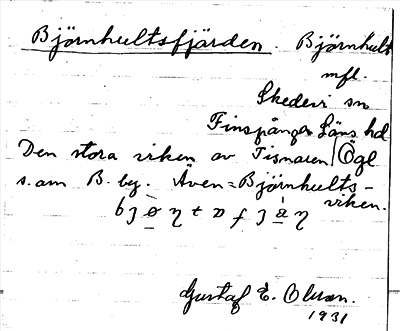 Björnhultsfjärden Björnhult
mfl.
Skedevi sn
Finspånga Läns hd
Den stora viken av Tisnaren Ögl
s. om B. by. Även = Björnhults-
viken.
Gustaf E. Olsson.
1931